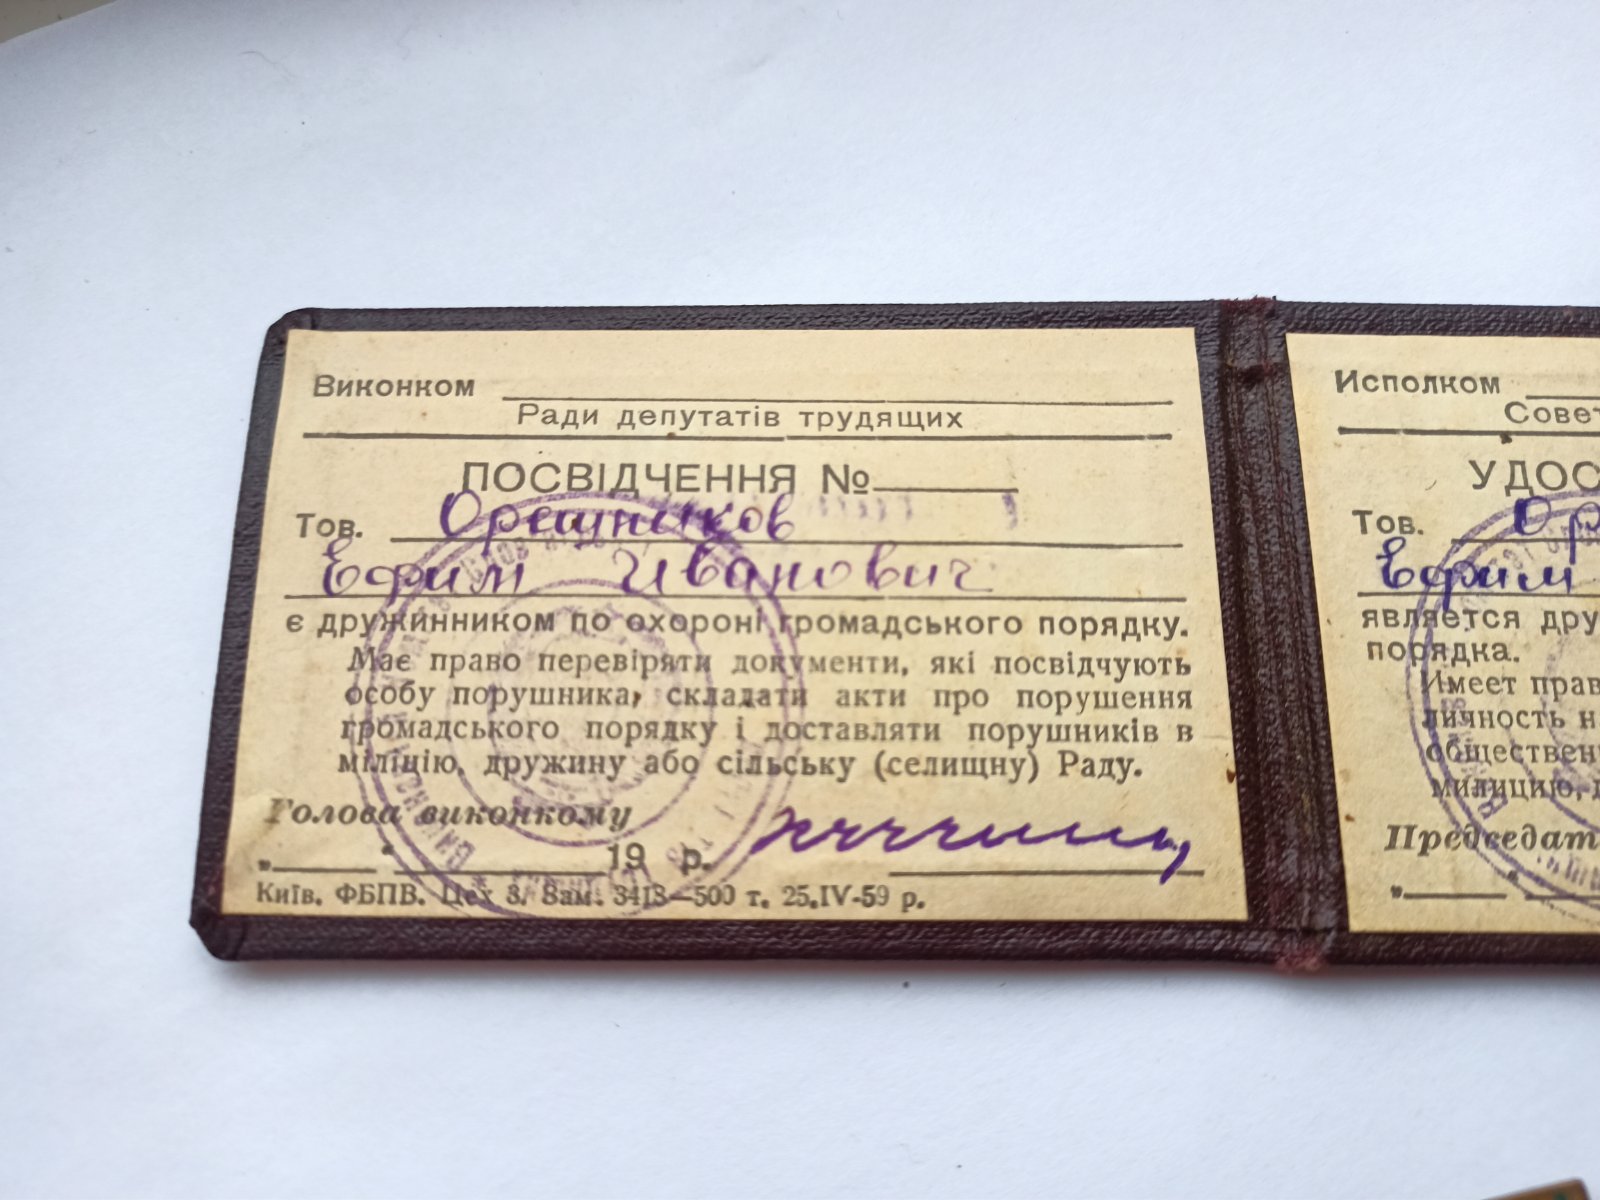 Виконком
Ради депутатів трудящих
ПОСВІДЧЕННЯ №
Тов. Орешников
Ефим Иванович
є дружинником по охороні громадського порядку.
Має право перевіряти документи, які посвідчують
особу порушника, складати акти про порушення
громадського порядку і доставляти порушників в
міліцію, дружину або сільську (селищну) Раду.
Голова виконкому
„ “ 19 р.
Київ. ФБПВ. Цех 3. Зам. 3413—500 т. 25.IV-59 р.
Исполком
Совет
УДОС
Тов. Ор
Ефим
является дру
порядка.
Имеет прав
личность н
обществен
милицию, д
Председат
„ “